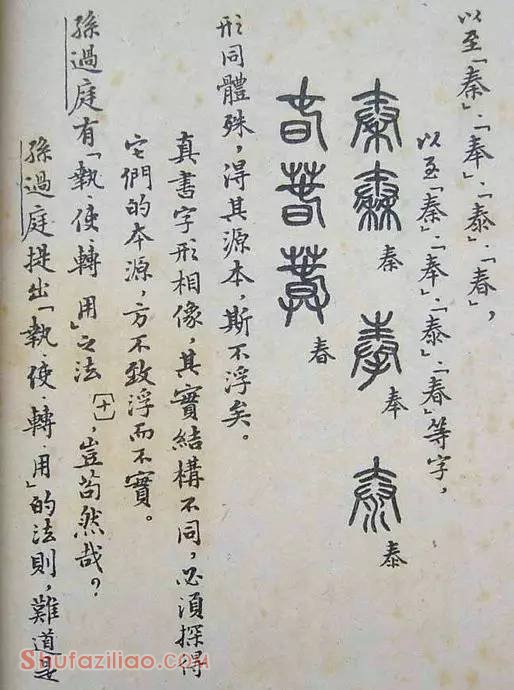 以至「秦」、「奉」、「泰」、「春」，
以至「秦」、「奉」、「泰」、「春」等字，
秦 奉 泰
春
形同體殊，得其源本，斯不浮矣。
真書字形相像，其實結構不同，必須探得
它們的本源，方不致浮而不實。
孫過庭有「執、使、轉、用」之法〔十〕，豈苟然哉？
孫過庭提出「執、使、轉、用」的法則，難道是
Shufaziliao.COM